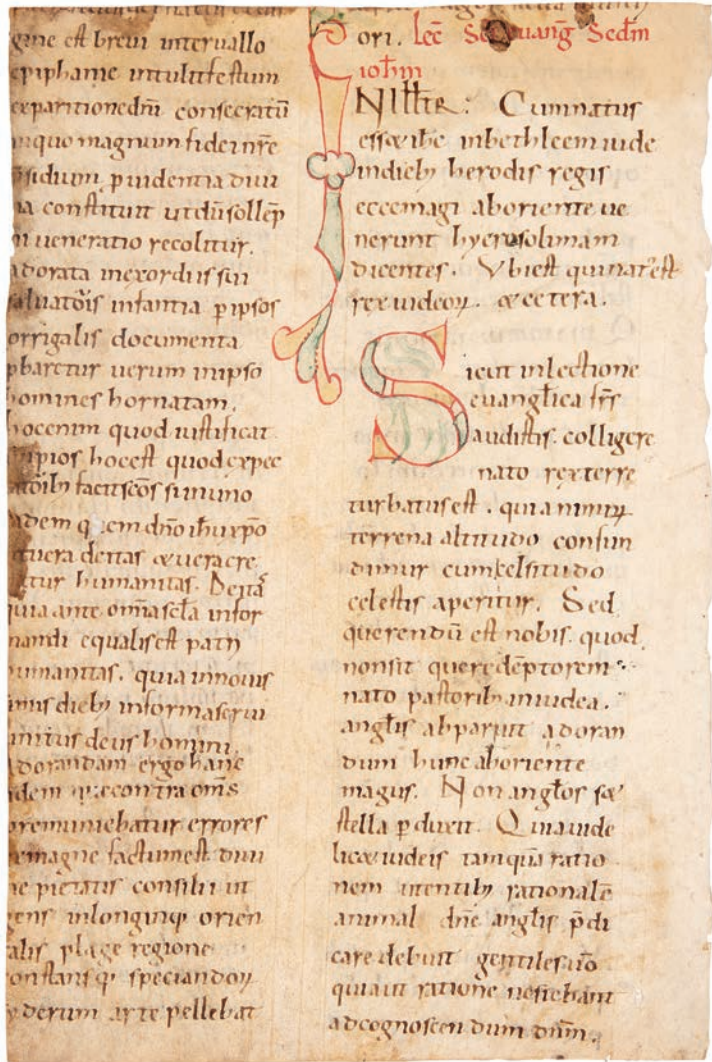 gine est breui interuallo
epiphanie intulit festum
exparitione dñi consecratū
inquo magnum fidei nr̄e
p̄sidium puidentia diui
na constituit ut dū sollēp
ni ueneratio recolitur.
adorata inexordiis sui
saluatoris infantia p ipsos
orrigalis documenta
pbaretur uerum inipso
homines hornatam.
hocenim quod iustificat
impios hocest quodexpec
facit scōs siuuino
adem q; em dño ihu xp̄o
uera deitas & uera cre
tur humanitas. Deitas
quia ante omīa scl̄a infor
mandi equalis est patri
humanitas. quia innouis
imis dieb; informa serui
unitus deus homini.
adorandam ergo hanc
idem que contra om̄s
premuniebatur errores
emagne factum est diui
ne pietatis consilii ut
gens inlonginqe orien
talis plage regione
constansq; speciandoꝝ
syderum arte pellebat
ori. lec̄ Sc̄i euanḡ Secdm̄
iohm̄
IN ILL̄ TR̄: Cum natus
esset ihc inbethleem iude
indieb; herodis regis
ecce magi ab oriente ue
nerunt hyerosolimam
dicentes. Vbi est qui nat᷒ est
rex iudeoꝝ. & cetera.
Sicut inlectione
euanglica frs̄
audistis. colligere
nato rex terre
turbatus est. quia nimiꝝ
terrena altitudo confun
dimur cum celsitudo
celestis aperitur. Sed
querendū est nobis. quod
nonsit quere dēptorem
nato pastorib; iniudea.
angl̄is abparuit adoran
dum hunc aboriente
magus. Non angl̄os sz
stella pduxit. Quia uide
lic& iudeis tamquā ratio
nem utentib; rationale
animal dn̄e angl̄is p̄di
care debuit gentiles uō
quia ut ratione nesciebant
adcognoscendum dnm̄.